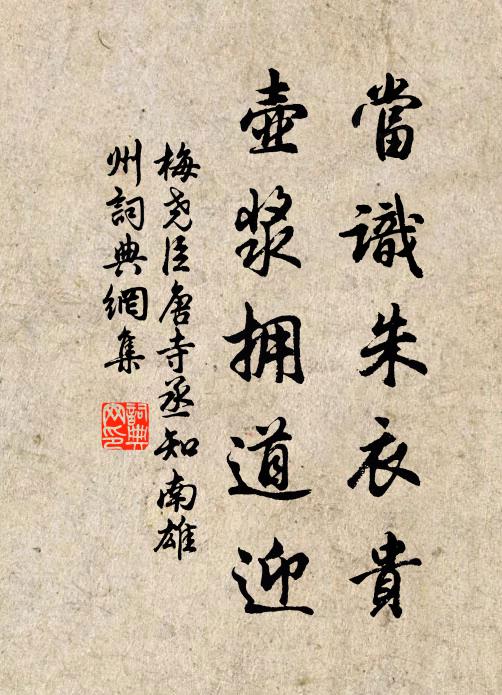 當識朱衣貴
壺漿拥道迎
梅堯臣唐寺丞知南雄
州詞典網集
詞典
网印